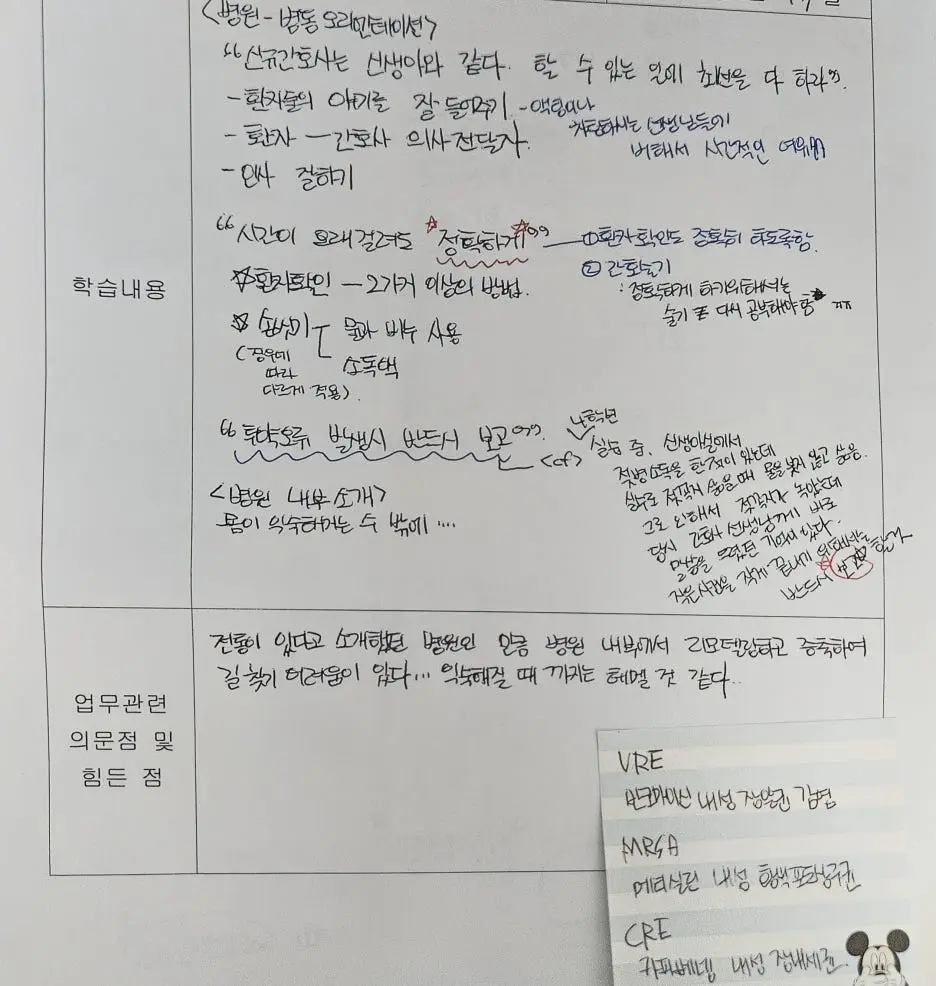 <병원-병동 오리엔테이션>
"신규간호사는 선생아와 같다. 할 수 있는 일에 최선을 다 하라".
- 환자들의 이야기를 잘 들어주기 - 액팅이나
차팅하시는 선생님들에
비해서 시간적인 여유
- 환자 - 간호사 의사전달자.
- 인사 잘하기
학습내용
"시간이 오래걸려도 ☆정확하게☆" - ① 환자확인도 정확히 하도록함.
☆환자확인 - 2가지 이상의 방법.
② 간호술기
: 정확하게 하기위해서는
술기 다시 공부해야함 ㅠㅠ
☆ 손씻기 물과 비누 사용
소독액
(경우에
따라
다르게 적용).
"투약오류 발생시 반드시 보고".
<cf> 실습 중, 신생아실에서
젖병소독을 한적이 있는데
실수로 젖꼭지 삶을때 물을 넣지 않고 삶음.
그로 인해서 젖꼭지가 녹았는데
당시 간호사 선생님께 바로
말씀을 드렸던 기억이 있다.
작은사건을 작게 끝내기 위해서는
반드시 보고 한다
<병원 내부 소개>
몸이 익숙해지는 수 밖에 ....
업무관련
의문점 및
힘든 점
전통이 있다고 소개했던 병원인 만큼 병원 내부에서 리모델링하고 증축하여
길찾기 어려움이 있다... 익숙해질 때 까지는 헤맬 것 같다..
VRE
반코마이신 내성 장알균 감염
MRSA
메티실린 내성 황색포도상구균
CRE
카바페넴 내성 장내세균.